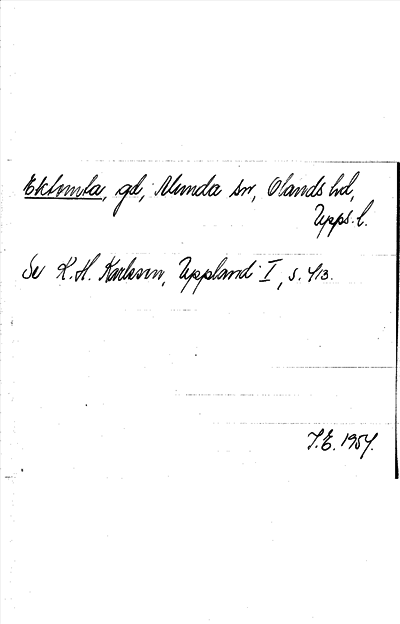 Ektomta, gd, Alunda sn, Olands hd,
Upps. l.
Se K. H. Karlsson, Uppland I, s. 413.
T.E. 1957.